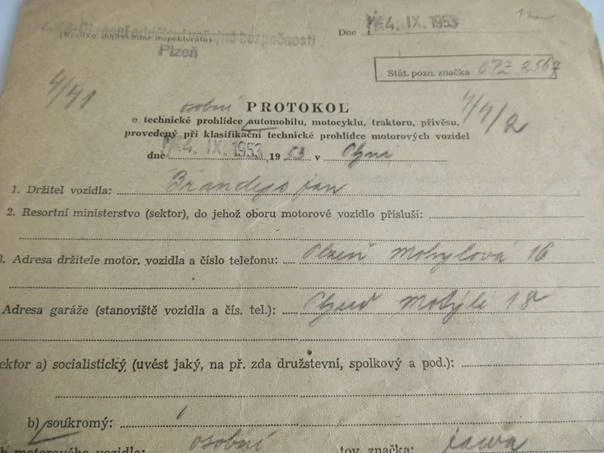 veřejné bezpečnosti
Dne 4. IX. 1953
Plzeň
Stát. pozn. značka
4/41
osobní
PROTOKOL
o technické prohlídce automobilu, motocyklu, traktoru, přívěsu,
provedený při klasifikační technické prohlídce motorových vozidel
dne 4. IX. 1953 19 53 v
1. Držitel vozidla: Jan
2. Resortní ministerstvo (sektor), do jehož oboru motorové vozidlo přísluší:
3. Adresa držitele motor. vozidla a číslo telefonu: Plzeň 16
Adresa garáže (stanoviště vozidla a čís. tel.): 18
ektor a) socialistický (uvést jaký, na př. zda družstevní, spolkový a pod.):
b) soukromý:
motorového vozidla: osobní tov. značka: Jawa